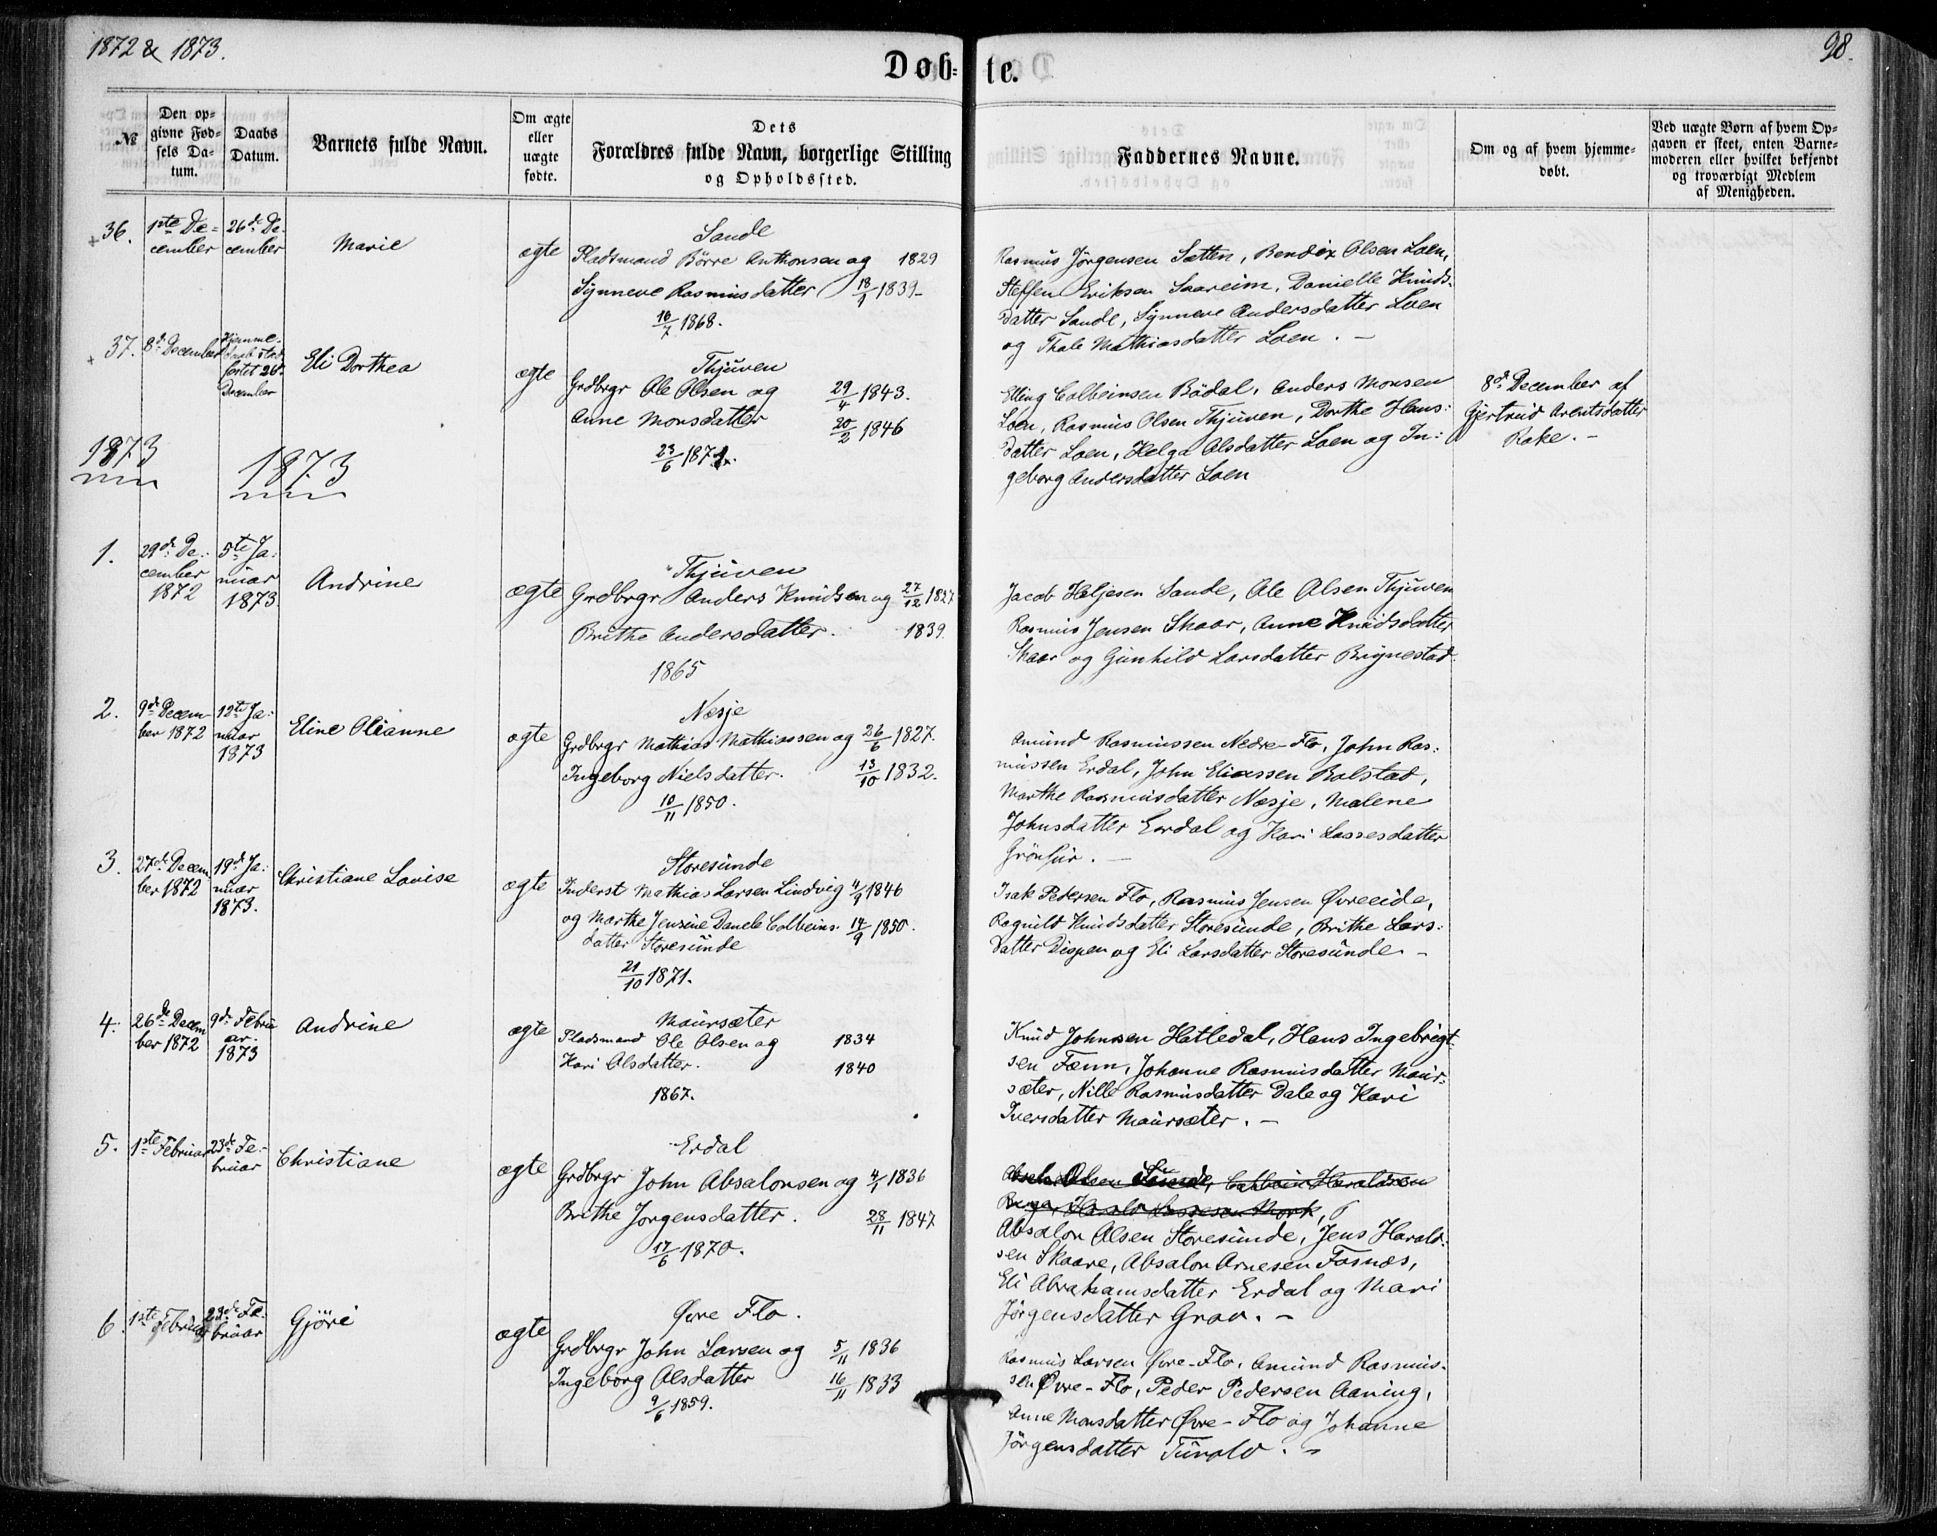 1872 & 1873.
98.
Døb-te.
№
Den op-
givne Fød-
sels Da-
tum.
Daabs
Datum.
Barnets fulde Navn.
Om ægte
eller
uægte
fødte.
Dets
Forældres fulde Navn, borgerlige Stilling
og Opholdssted.
Faddernes Navne.
Om og af hvem hjemme-
døbt.
Ved uægte Børn af hvem Op-
gaven er skeet, enten Barne-
moderen eller hvilket bekjendt
og troværdigt Medlem
af Menigheden.
+36.
1ste De-
cember
26de De-
cember
Marie
ægte
Sande
Pladsmand Börre Anthonsen og 1829
Synneve Rasmusdatter 18/1 1839
16/7 1868.
Rasmus Jörgensen Sætten, Bendix Olsen Loen,
Steffen Eriksen Saareim, Danielle Knuds-
datter Sande, Synneve Andersdatter Loen
og Thale Mathiasdatter Loen. –
+37.
8de December
Hjemme-
daab stad-
fæstet 26de
December
Eli Dorthea
ægte
Thjuven
Grdbrgr Ole Olsen og 29/4 1843.
Anne Monsdatter 20/2 1846
23/6 1871.
Elling Colbeinsen Bödal, Anders Monsen
Loen, Rasmus Olsen Thjuven, Dorthe Hans-
datter Loen, Helga Olsdatter Loen og In-
geborg Andersdatter Loen
8de December af
Gjertrud Arentsdatter
Rake. –
1873
1873
1.
29de De-
cember
1872
5te Ja-
nuar
1873
Andrine
ægte
Thjuven
Grdbrgr Anders Knudsen og 27/12 1827
Brithe Andersdatter. 1839
1865
Jacob Heljesen Sande, Ole Olsen Thjuven
Rasmus Jensen Skaar, Anne Knudsdatter
Skaar og Gunhild Larsdatter Brynestad
2.
9de Decem-
ber 1872
12te Ja-
nuar
1873
Eline Olianne
ægte
Nesje
Grdbrgr Mathias Mathiassen og 26/6 1827.
Ingeborg Nielsdatter. 13/10 1832.
10/11 1850.
Amund Rasmussen Nedre-Flo, John Ras-
mussen Erdal, John Eliassen Bolstad,
Marthe Rasmusdatter Næsje, Malene
Johnsdatter Erdal og Kari Lassesdatter
Grönfur. –
3.
27de Decem
ber 1872
19de Ja-
nuar
1873.
Christiane Lovise
ægte
Storesunde
Inderst Mathias Larsen Lindvig 4/9 1846
og Marthe Jensine Danele Colbeins- 14/9 1850.
datter Storesunde
21/10 1871.
Isak Pedersen Flo, Rasmus Jensen Øvreeide,
Ragnild Knudsdatter Storesunde, Brithe Lars-
datter Dispen og Eli Larsdatter Storesunde –
4.
26de Decem
ber 1872
9de Febru
ar.
1873
Andrine
ægte
Maursæter
Pladsmand Ole Olsen og 1834
Kari Olsdatter. 1840
1867.
Knud Johnsen Hatledal, Hans Ingebrigt-
sen Fænn, Johanne Rasmusdatter Maur-
sæter, Nille Rasmusdatter Dale og Kari
Iversdatter Maursæter. –
5.
1ste Februar
23de Fe-
bruar
Christiane
ægte
Erdal
Grdbrgr John Absalonsen og 4/1 1836
Brithe Jorgensdatter. 28/11 1847
17/6 1870.
Olsen Sunde, Colbein Haraldsen
Harald Lassesen Mork,
Absalon Olsen Storesunde, Jens Harald-
sen Skaare, Absalon Arnesen Fosnæs,
Eli Abrahamsdatter Erdal og Mari
Jörgensdatter Grov. –
6.
1ste Februar
23de Fe-
bruar
Gjöri
ægte
Øvre Flo.
Grdbrgr John Larsen og 5/11 1836
Ingeborg Olsdatter 16/11 1833
9/6 1859.
Rasmus Larsen Øvre-Flo, Amund Rasmus-
sen Øvre-Flo, Peder Pedersen Aaning,
Anne Monsdatter Øvre-Flo og Johanne
Jörgensdatter Tunold. –